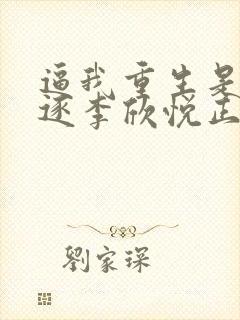 逼我重生是
逐李欣悦正
劉家琛